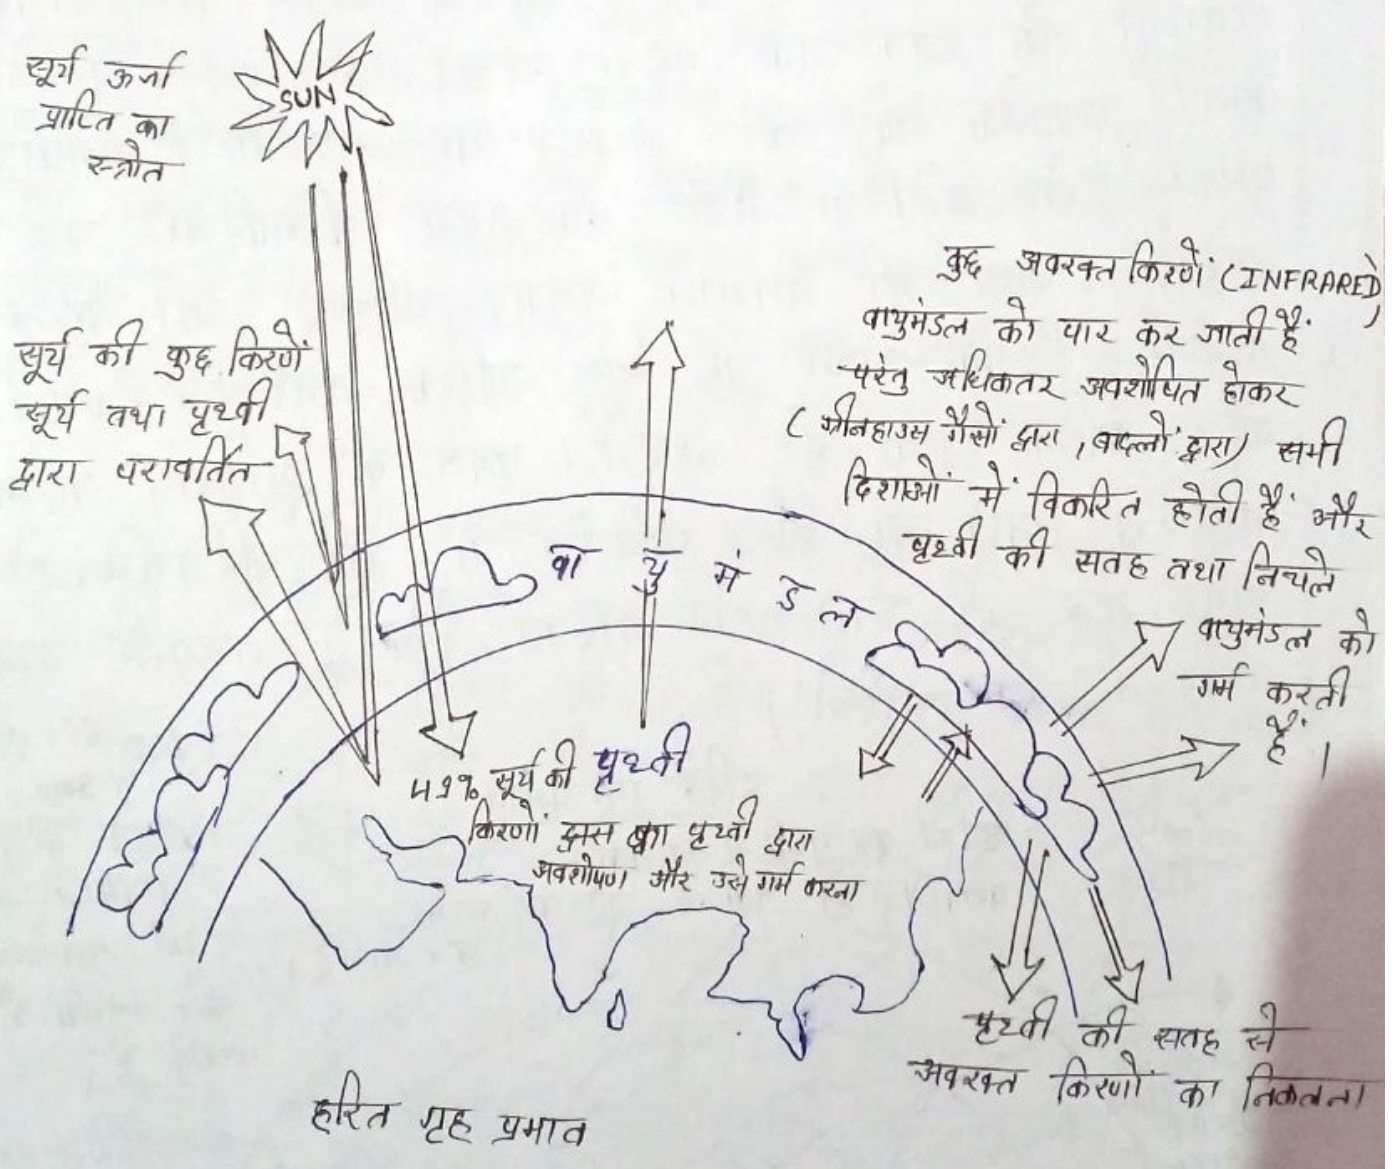 सूर्य ऊर्जा
प्राप्ति का
स्त्रोत
SUN
सूर्य की कुछ किरणें
सूर्य तथा पृथ्वी
द्वारा परावर्तित
कुछ अवरक्त किरणें (INFRARED)
वायुमंडल को पार कर जाती हैं
परंतु अधिकतर अवशोषित होकर
(ग्रीनहाउस गैसों द्वारा, बादलों द्वारा) सभी
दिशाओं में विकरित होती हैं और
पृथ्वी की सतह तथा निचले
वायुमंडल को
गर्म करती
हैं।
वा यु मं ड ल
पृथ्वी
49% सूर्य की
किरणों द्वारा पृथ्वी द्वारा
अवशोषण और उसे गर्म करना
पृथ्वी की सतह से
अवरक्त किरणों का निकलना
हरित गृह प्रभाव